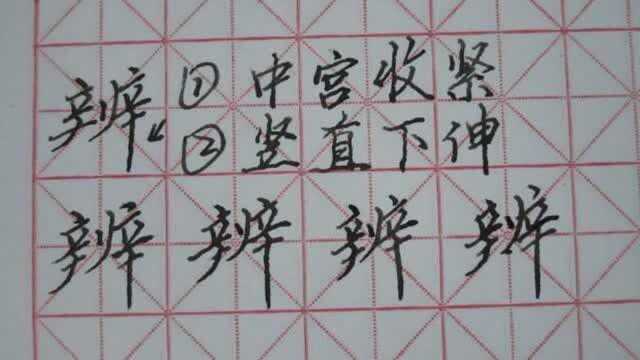 辨 ①中宫收紧
②竖直下伸
辨 辨 辨 辨